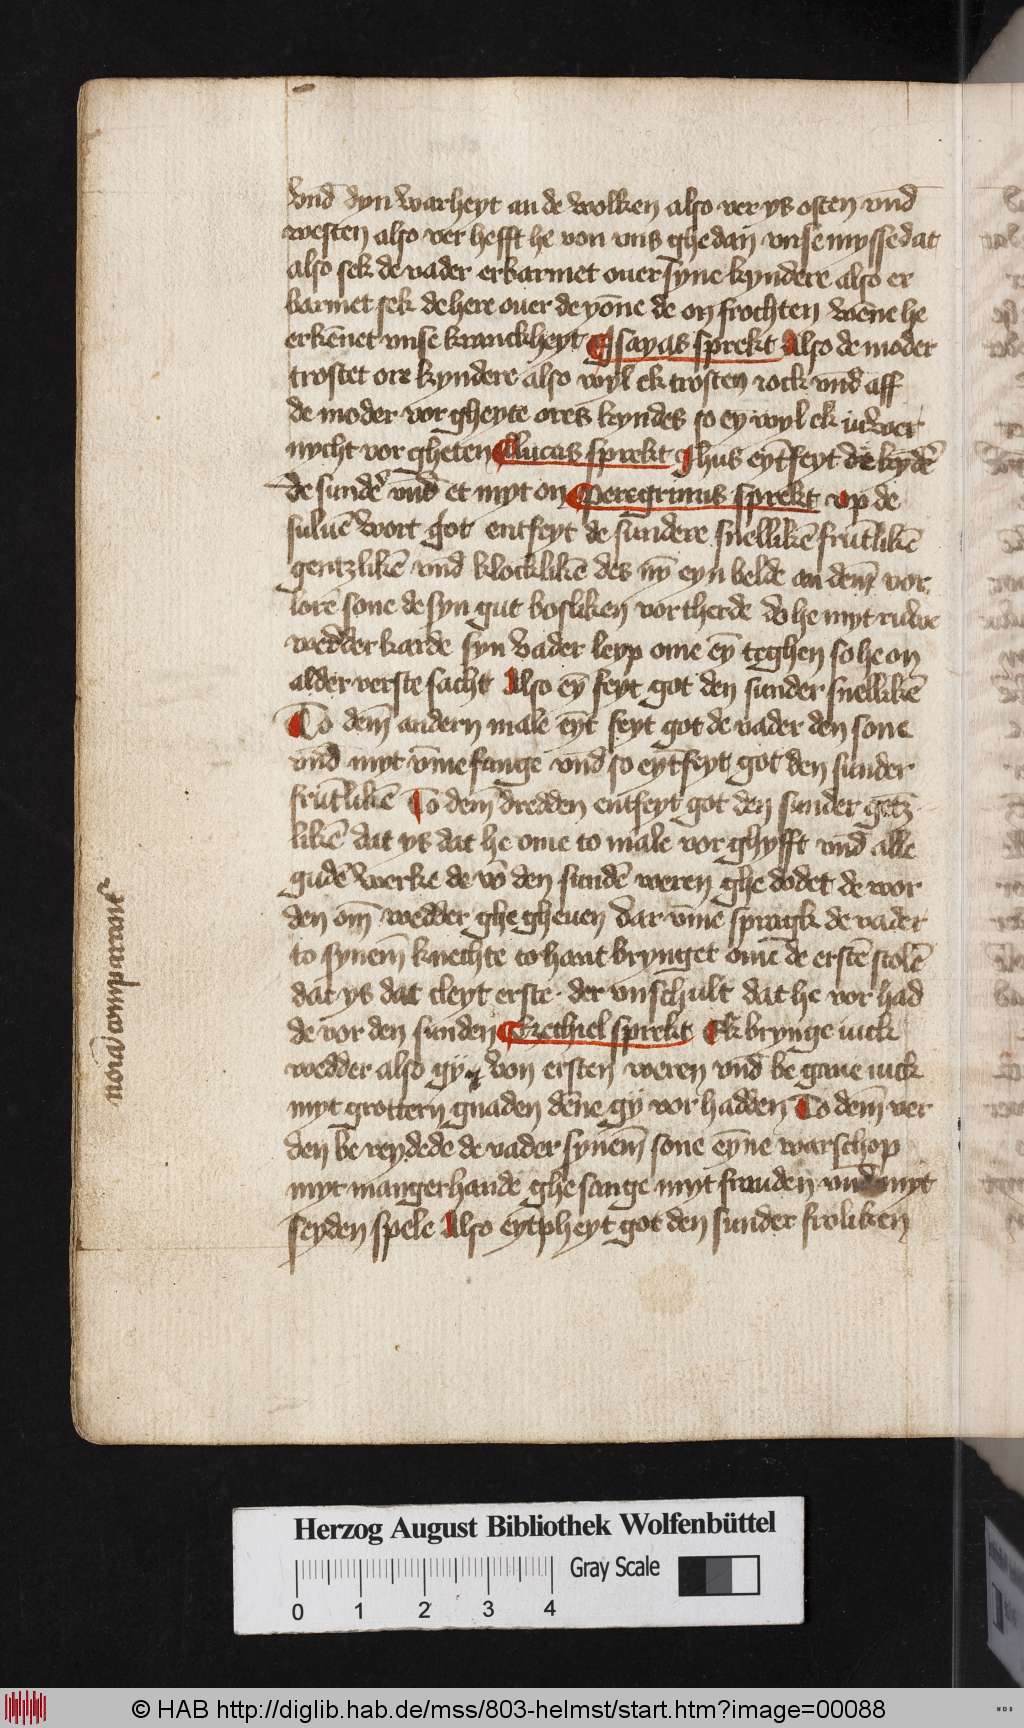 vnd dyn warheyt an de wolken also ver ys osten vnd
westen also ver hefft he von vns ghedan vnse myssedat
also sek de vader erbarmet ouer syne kyndere also er
barmet sek de here ouer de yōne de on frochten wēne he
erkēnet vnse kranckheyt Esayas sprekt Also de moder
trostet ore kyndere also wyl ek trosten iock vnd aff
de moder vor gheyte ores kyndes so ey wyl ek iuwer
nycht vor gheten Lucas sprekt Ihus eȳtfeyt de
de sundē vnd et myt on Peregrinus sprekt vp de
suluē wort got entfeyt de sundere snellikē frūtlikē
gentzlikē vnd klocklikē des nȳ eyn belde an dem̄ vor
lorē sone de syn gut bosliken vortherde do he myt ruwe
wedder karde syn vader leyp ome eȳ teghen so he on
alder verste sacht Also eȳ feyt got den sunder snellikē
To dem̄ andern male eȳt feyt got de vader den sone
vnd myt vm̄efange vnd so eȳtfeyt got den sunder
frūtlikē To dem̄ dredden entfeyt got den sunder getz
likē dat ys dat he ome to male vor ghyfft vnd alle
gudē werke de vō den sundē weren ghe dodet de wor
den om̄ wedder ghe gheuen dar vm̄e spragk de vader
to synem̄ knechte to hant brynget ome de erstē stolē
dat ys dat cleyt erste der vnschult dat he vor had
de vor den sunden Ezechiel sprekt Ek brynge iuck
wedder also gy von ersten weren vnd be gaue iuck
myt grottern gnaden dēne gy vor hadden To dem̄ ver
den be reydede de vader synem̄ sone eȳne warschop
myt mangerhande ghe sange myt frauden vnd myt
seyden spele Also eȳtpheyt got den sunder froliken
Herzog August Bibliothek Wolfenbüttel
Gray Scale
0 1 2 3 4
© HAB http://diglib.hab.de/mss/803-helmst/start.htm?image=00088